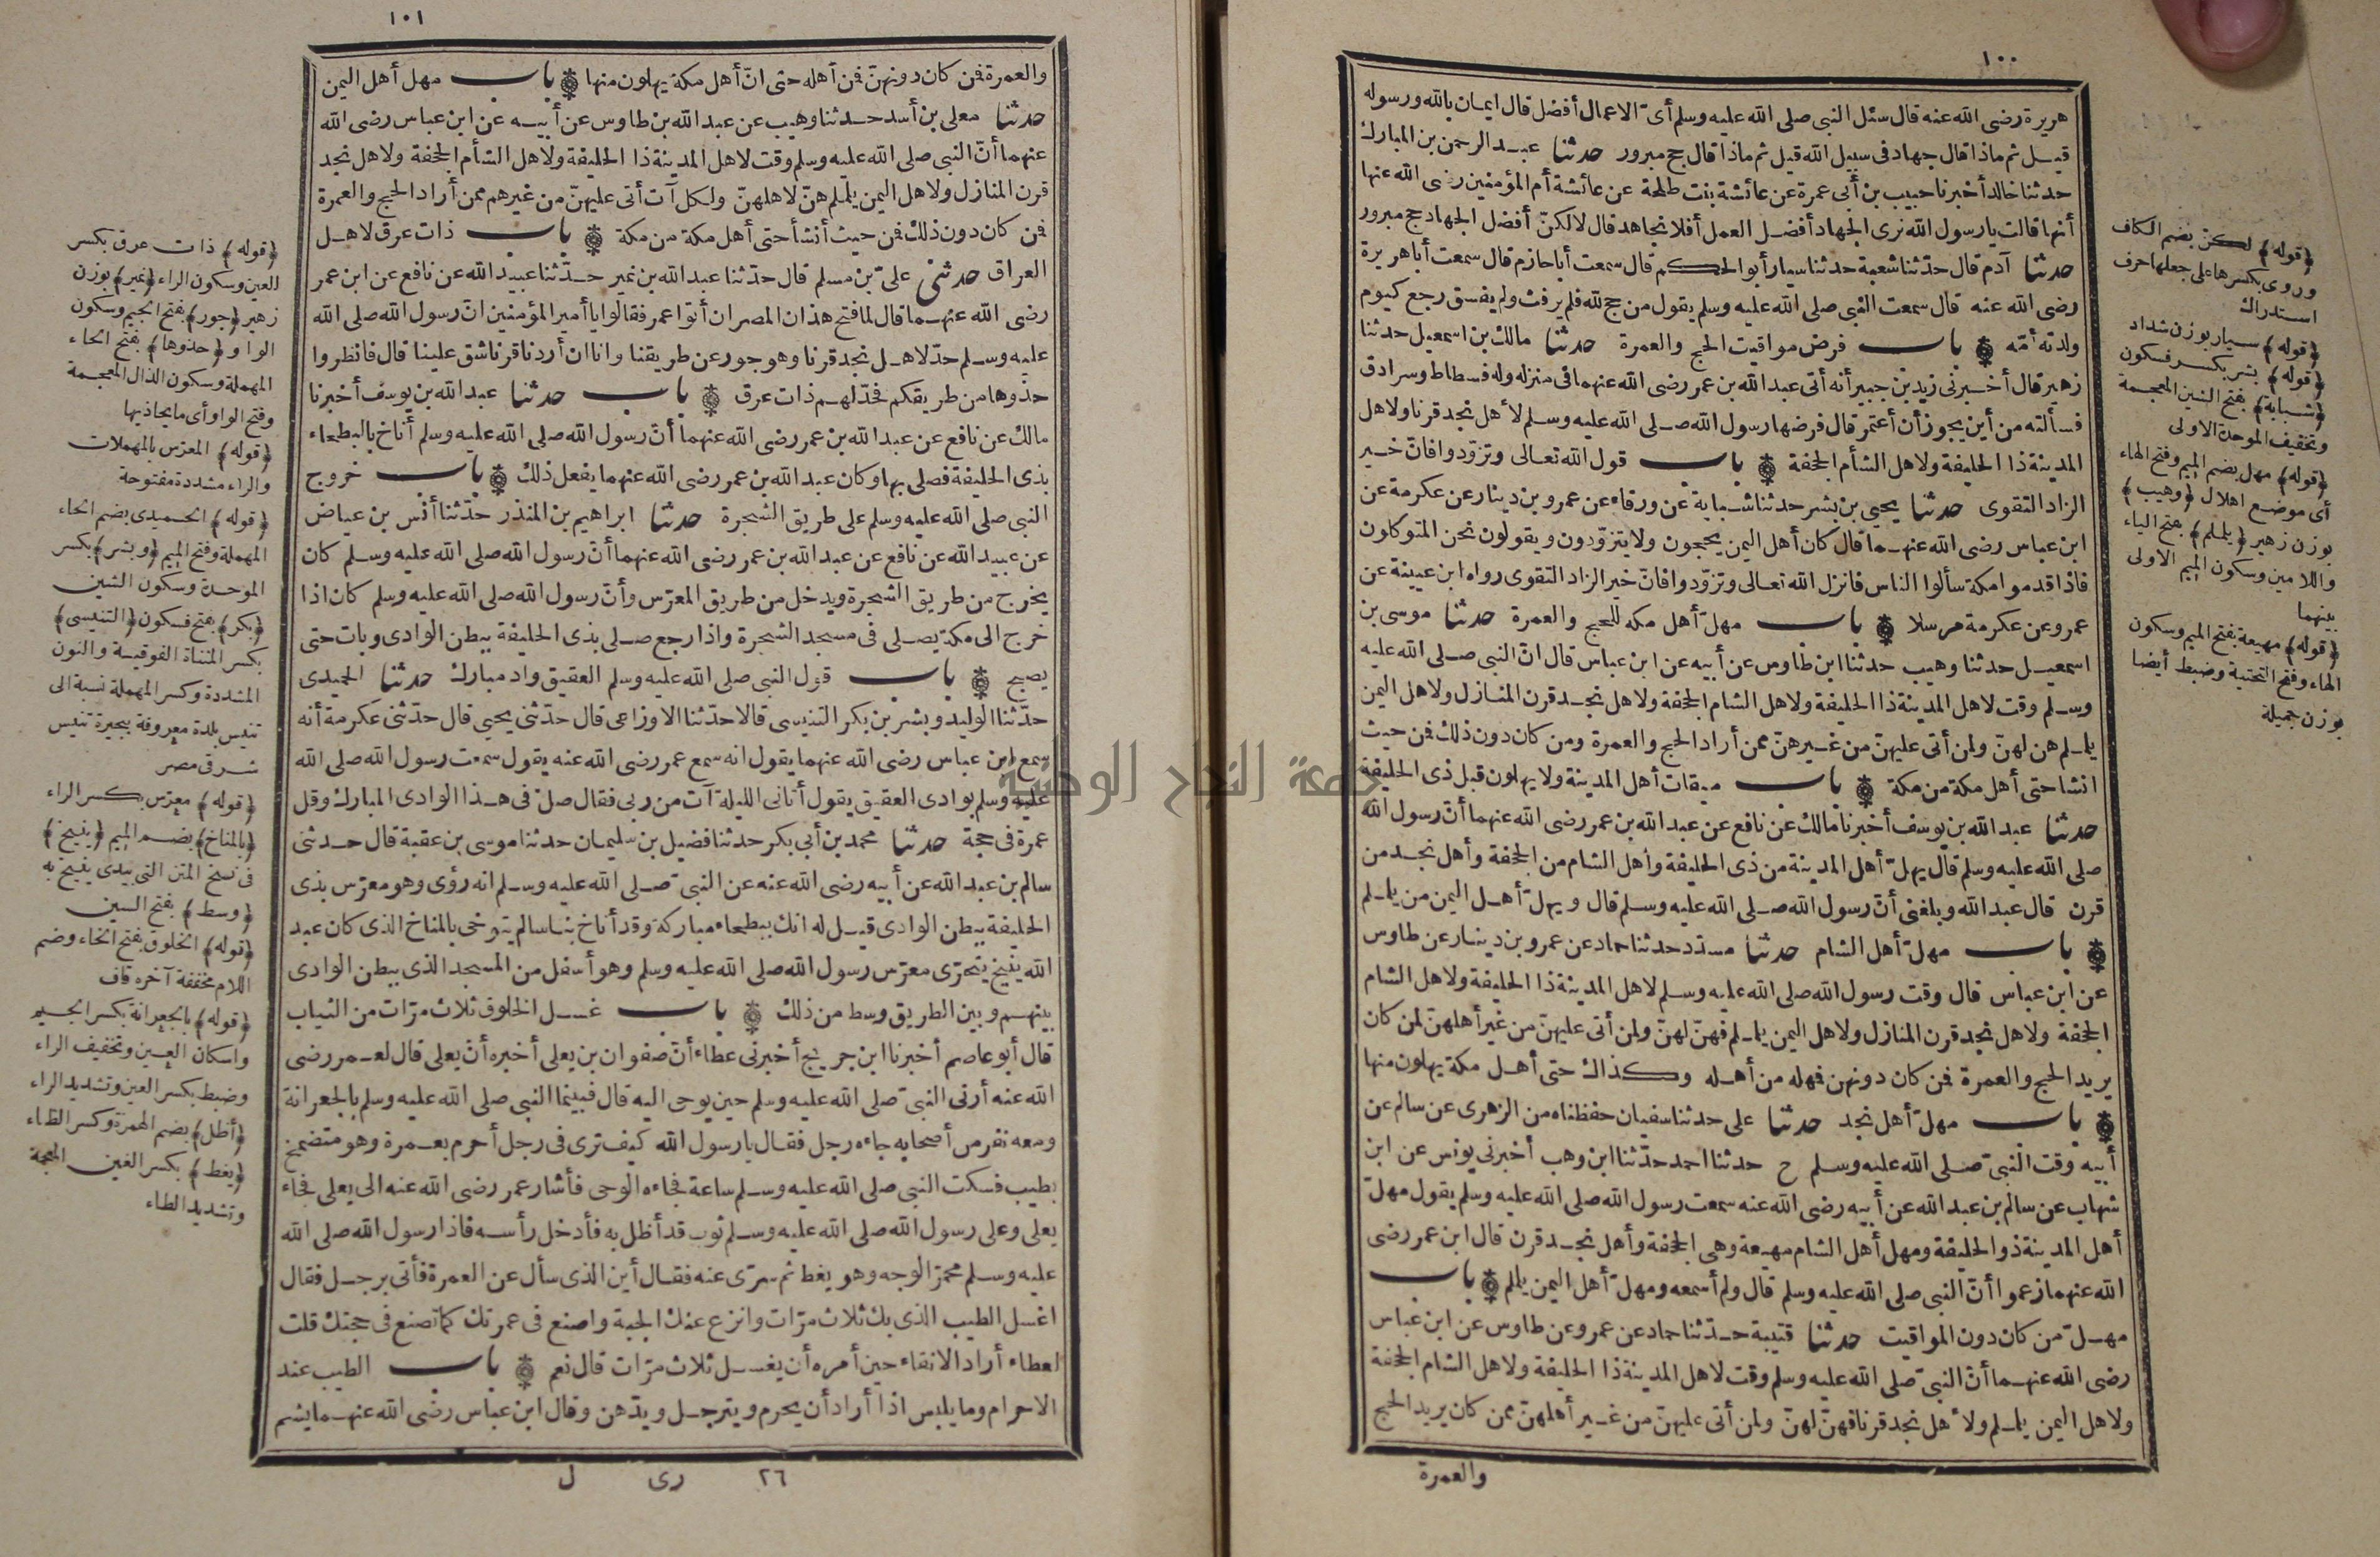 ١٠٠
هريرة رضى الله عنه قال سئل النبى صلى الله عليه وسلم أىّ الاعمال أفضل قال ايمان بالله ورسوله
قيل ثم ماذا قال جهاد فى سبيل الله قيل ثم ماذا قال حج مبرور حدثنا عبد الرحمن بن المبارك
حدثنا خالد أخبرنا حبيب بن أبى عمرة عن عائشة بنت طلحة عن عائشة أم المؤمنين رضى الله عنها
أنها قالت يا رسول الله نرى الجهاد أفضل العمل أفلا نجاهد قال لا لكنّ أفضل الجهاد حج مبرور
حدثنا آدم قال حدّثنا شعبة حدثنا سيار أبو الحكم قال سمعت أبا حازم قال سمعت أبا هريرة
رضى الله عنه قال سمعت النبى صلى الله عليه وسلم يقول من حج لله فلم يرفث ولم يفسق رجع كيوم
ولدته أمّه باب فرض مواقيت الحج والعمرة حدثنا مالك بن اسمعيل حدثنا
زهير قال أخبرنى زيد بن جبير أنه أتى عبد الله بن عمر رضى الله عنهما فى منزله وله فسطاط وسرادق
فسألته من أين يجوز أن أعتمر قال فرضها رسول الله صلى الله عليه وسلم لأهل نجد قرنا ولاهل
المدينة ذا الحليفة ولاهل الشأم الجحفة باب قول الله تعالى وتزوّدوا فانّ خير
الزاد التقوى حدثنا يحيى بن بشر حدثنا شبابة عن ورقاء عن عمرو بن دينار عن عكرمة عن
ابن عباس رضى الله عنهما قال كان أهل اليمن يحجون ولا يتزوّدون ويقولون نحن المتوكلون
فاذا قدموا مكة سألوا الناس فانزل الله تعالى وتزوّدوا فانّ خير الزاد التقوى رواه ابن عيينة عن
عمرو عن عكرمة مرسلا باب مهلّ أهل مكه للحج والعمرة حدثنا موسى بن
اسمعيل حدثنا وهيب حدثنا ابن طاوس عن أبيه عن ابن عباس قال انّ النبى صلى الله عليه
وسلم وقت لاهل المدينة ذا الحليفة ولاهل الشام الجحفة ولاهل نجد قرن المنازل ولاهل اليمن
يلملم هن لهنّ ولمن أتى عليهنّ من غيرهنّ ممن أراد الحج والعمرة ومن كان دون ذلك فمن حيث
انشا حتى أهل مكة من مكة باب ميقات أهل المدينة ولا يهلون قبل ذى الحليفة
حدثنا عبد الله بن يوسف أخبرنا مالك عن نافع عن عبد الله بن عمر رضى الله عنهما أنّ رسول الله
صلى الله عليه وسلم قال يهلّ أهل المدينة من ذى الحليفة وأهل الشام من الجحفة وأهل نجد من
قرن قال عبد الله وبلغنى أنّ رسول الله صلى الله عليه وسلم قال ويهلّ أهل اليمن من يلملم
باب مهلّ أهل الشام حدثنا مسدّد حدثنا حماد عن عمرو بن دينار عن طاوس
عن ابن عباس قال وقت رسول الله صلى الله عليه وسلم لاهل المدينة ذا الحليفة ولاهل الشام
الجحفة ولاهل نجد قرن المنازل ولاهل اليمن يلملم فهنّ لهنّ ولمن أتى عليهنّ من غير أهلهنّ لمن كان
يريد الحج والعمرة فمن كان دونهن فمهله من أهله وكذاك حتى أهل مكة يهلون منها
باب مهلّ أهل نجد حدثنا على حدثنا سفيان حفظناه من الزهرى عن سالم عن
أبيه وقت النبىّ صلى الله عليه وسلم ح حدثنا احمد حدّثنا ابن وهب أخبرنى يونس عن ابن
شهاب عن سالم بن عبد الله عن أبيه رضى الله عنه سمعت رسول الله صلى الله عليه وسلم يقول مهلّ
أهل المدينة ذو الحليفة ومهل أهل الشام مهيعة وهى الجحفة وأهل نجد قرن قال ابن عمر رضى
الله عنهما زعموا أنّ النبى صلى الله عليه وسلم قال ولم أسمعه ومهلّ أهل اليمن يلملم باب
مهلّ من كان دون المواقيت حدثنا قتيبة حدّثنا حماد عن عمرو عن طاوس عن ابن عباس
رضى الله عنهما أنّ النبىّ صلى الله عليه وسلم وقت لاهل المدينة ذا الحليفة ولاهل الشام الجحفة
ولاهل اليمن يلملم ولأهل نجد قرنا فهنّ لهنّ ولمن أتى عليهنّ من غير أهلهنّ ممن كان يريد الحج
والعمرة
﴿قوله﴾ لكنّ بضم الكاف
وروى بكسرها على جعلها حرف
استدراك
﴿قوله﴾ سيار بوزن شداد
﴿قوله﴾ بشر بكسر فسكون
﴿شبابة﴾ بفتح الشين المعجمة
وتخفيف الموحدة الاولى
﴿قوله﴾ مهل بضم الميم وفتح الهاء
أى موضع اهلال ﴿وهيب﴾
بوزن زهير ﴿يلملم﴾ بفتح الياء
واللامين وسكون الميم الاولى
بينهما
﴿قوله﴾ مهيعة بفتح الميم وسكون
الهاء وفتح التحتية وضبط أيضا
بوزن جميلة
١٠١
والعمرة فمن كان دونهنّ فمن أهله حتى انّ أهل مكة يهلون منها باب مهل أهل اليمن
حدثنا معلى بن أسد حدثنا وهيب عن عبد الله بن طاوس عن أبيه عن ابن عباس رضى الله
عنهما أنّ النبى صلى الله عليه وسلم وقت لاهل المدينة ذا الحليفة ولاهل الشأم الجحفة ولاهل نجد
قرن المنازل ولاهل اليمن يلملم هنّ لاهلهنّ ولكل آت أتى عليهنّ من غيرهم ممن أراد الحج والعمرة
فمن كان دون ذلك فمن حيث أنشأ حتى أهل مكة من مكة باب ذات عرق لاهل
العراق حدثنى علىّ بن مسلم قال حدّثنا عبد الله بن نمير حدّثنا عبيد الله عن نافع عن ابن عمر
رضى الله عنهما قال لما فتح هذان المصران أتوا عمر فقالوا يا أمير المؤمنين انّ رسول الله صلى الله
عليه وسلم حدّ لاهل نجد قرنا وهو جور عن طريقنا وانا ان أردنا قرنا شق علينا قال فانظروا
حذوها من طريقكم فحدّ لهم ذات عرق باب حدثنا عبد الله بن يوسف أخبرنا
مالك عن نافع عن عبد الله بن عمر رضى الله عنهما أنّ رسول الله صلى الله عليه وسلم أناخ بالبطحاء
بذى الحليفة فصلى بها وكان عبد الله بن عمر رضى الله عنهما يفعل ذلك باب خروج
النبى صلى الله عليه وسلم على طريق الشجرة حدثنا ابراهيم بن المنذر حدّثنا أنس بن عياض
عن عبيد الله عن نافع عن عبد الله بن عمر رضى الله عنهما أنّ رسول الله صلى الله عليه وسلم كان
يخرج من طريق الشجرة ويدخل من طريق المعرّس وأنّ رسول الله صلى الله عليه وسلم كان اذا
خرج الى مكة يصلى فى مسجد الشجرة واذا رجع صلى بذى الحليفة ببطن الوادى وبات حتى
يصبح باب قول النبى صلى الله عليه وسلم العقيق واد مبارك حدثنا الحميدى
حدّثنا الوليد وبشر بن بكر التنيسى قالا حدّثنا الاوزاعى قال حدّثنى يحيى قال حدّثنى عكرمة أنه
سمع ابن عباس رضى الله عنهما يقول انه سمع عمر رضى الله عنه يقول سمعت رسول الله صلى الله
عليه وسلم بوادى العقيق يقول أتانى الليلة آت من ربى فقال صلّ فى هذا الوادى المبارك وقل
عمرة فى حجة حدثنا محمد بن أبى بكر حدثنا فضيل بن سليمان حدثنا موسى بن عقبة قال حدثنى
سالم بن عبد الله عن أبيه رضى الله عنه عن النبىّ صلى الله عليه وسلم انه رؤى وهو معرّس بذى
الحليفة ببطن الوادى قيل له انك ببطحاء مباركة وقد أناخ بنا سالم يتوخى بالمناخ الذى كان عبد
الله ينيخ يتحرّى معرّس رسول الله صلى الله عليه وسلم وهو أسفل من المسجد الذى ببطن الوادى
بينهم وبين الطريق وسط من ذلك باب غسل الخلوق ثلاث مرّات من الثياب
قال أبو عاصم أخبرنا ابن جريج أخبرنى عطاء أنّ صفوان بن يعلى أخبره أنّ يعلى قال لعمر رضى
الله عنه أرنى النبىّ صلى الله عليه وسلم حين يوحى اليه قال فبينما النبى صلى الله عليه وسلم بالجعرانة
ومعه نفر من أصحابه جاءه رجل فقال يا رسول الله كيف ترى فى رجل أحرم بعمرة وهو متضمخ
بطيب فسكت النبى صلى الله عليه وسلم ساعة فجاءه الوحى فأشار عمر رضى الله عنه الى يعلى فجاء
يعلى وعلى رسول الله صلى الله عليه وسلم ثوب قد أظل به فأدخل رأسه فاذا رسول الله صلى الله
عليه وسلم محمرّ الوجه وهو يغط ثم سرّى عنه فقال أين الذى سأل عن العمرة فأتى برجل فقال
اغسل الطيب الذى بك ثلاث مرّات وانزع عنك الجبة واصنع فى عمرتك كما تصنع فى حجتك قلت
لعطاء أراد الانقاء حين أمره أن يغسل ثلاث مرّات قال نعم باب الطيب عند
الاحرام وما يلبس اذا أراد أن يحرم ويترجل ويدّهن وقال ابن عباس رضى الله عنهما يشم
٢٦ رى ل
﴿قوله﴾ ذات عرق بكسر
العين وسكون الراء ﴿نمير﴾ بوزن
زهير ﴿جور﴾ بفتح الجيم وسكون
الواو ﴿حذوها﴾ بفتح الحاء
المهملة وسكون الذال المعجمة
وفتح الواو أى ما يحاذيها
﴿قوله﴾ المعرّس بالمهملات
والراء مشددة مفتوحة
﴿قوله﴾ الحميدى بضم الحاء
المهملة وفتح الميم ﴿وبشر﴾ بكسر
الموحدة وسكون الشين
﴿بكر﴾ بفتح فسكون ﴿التنيسى﴾
بكسر المثناة الفوقية والنون
المشددة وكسر المهملة نسبة الى
تنيس بلدة معروفة ببحيرة تنيس
شرقى مصر
﴿قوله﴾ معرّس بكسر الراء
﴿بالمناخ﴾ بضم الميم ﴿ينيخ﴾
فى نسخ المتن التى بيدى ينيخ به
﴿وسط﴾ بفتح السين
﴿قوله﴾ الخلوق بفتح الخاء وضم
اللام مخففة آخره قاف
﴿قوله﴾ بالجعرانة بكسر الجيم
واسكان العين وتخفيف الراء
وضبط بكسر العين وتشديد الراء
﴿أظل﴾ بضم الهمزة وكسر الظاء
﴿يغط﴾ بكسر الغين المعجمة
وتشديد الطاء
جامعة النجاح الوطنية